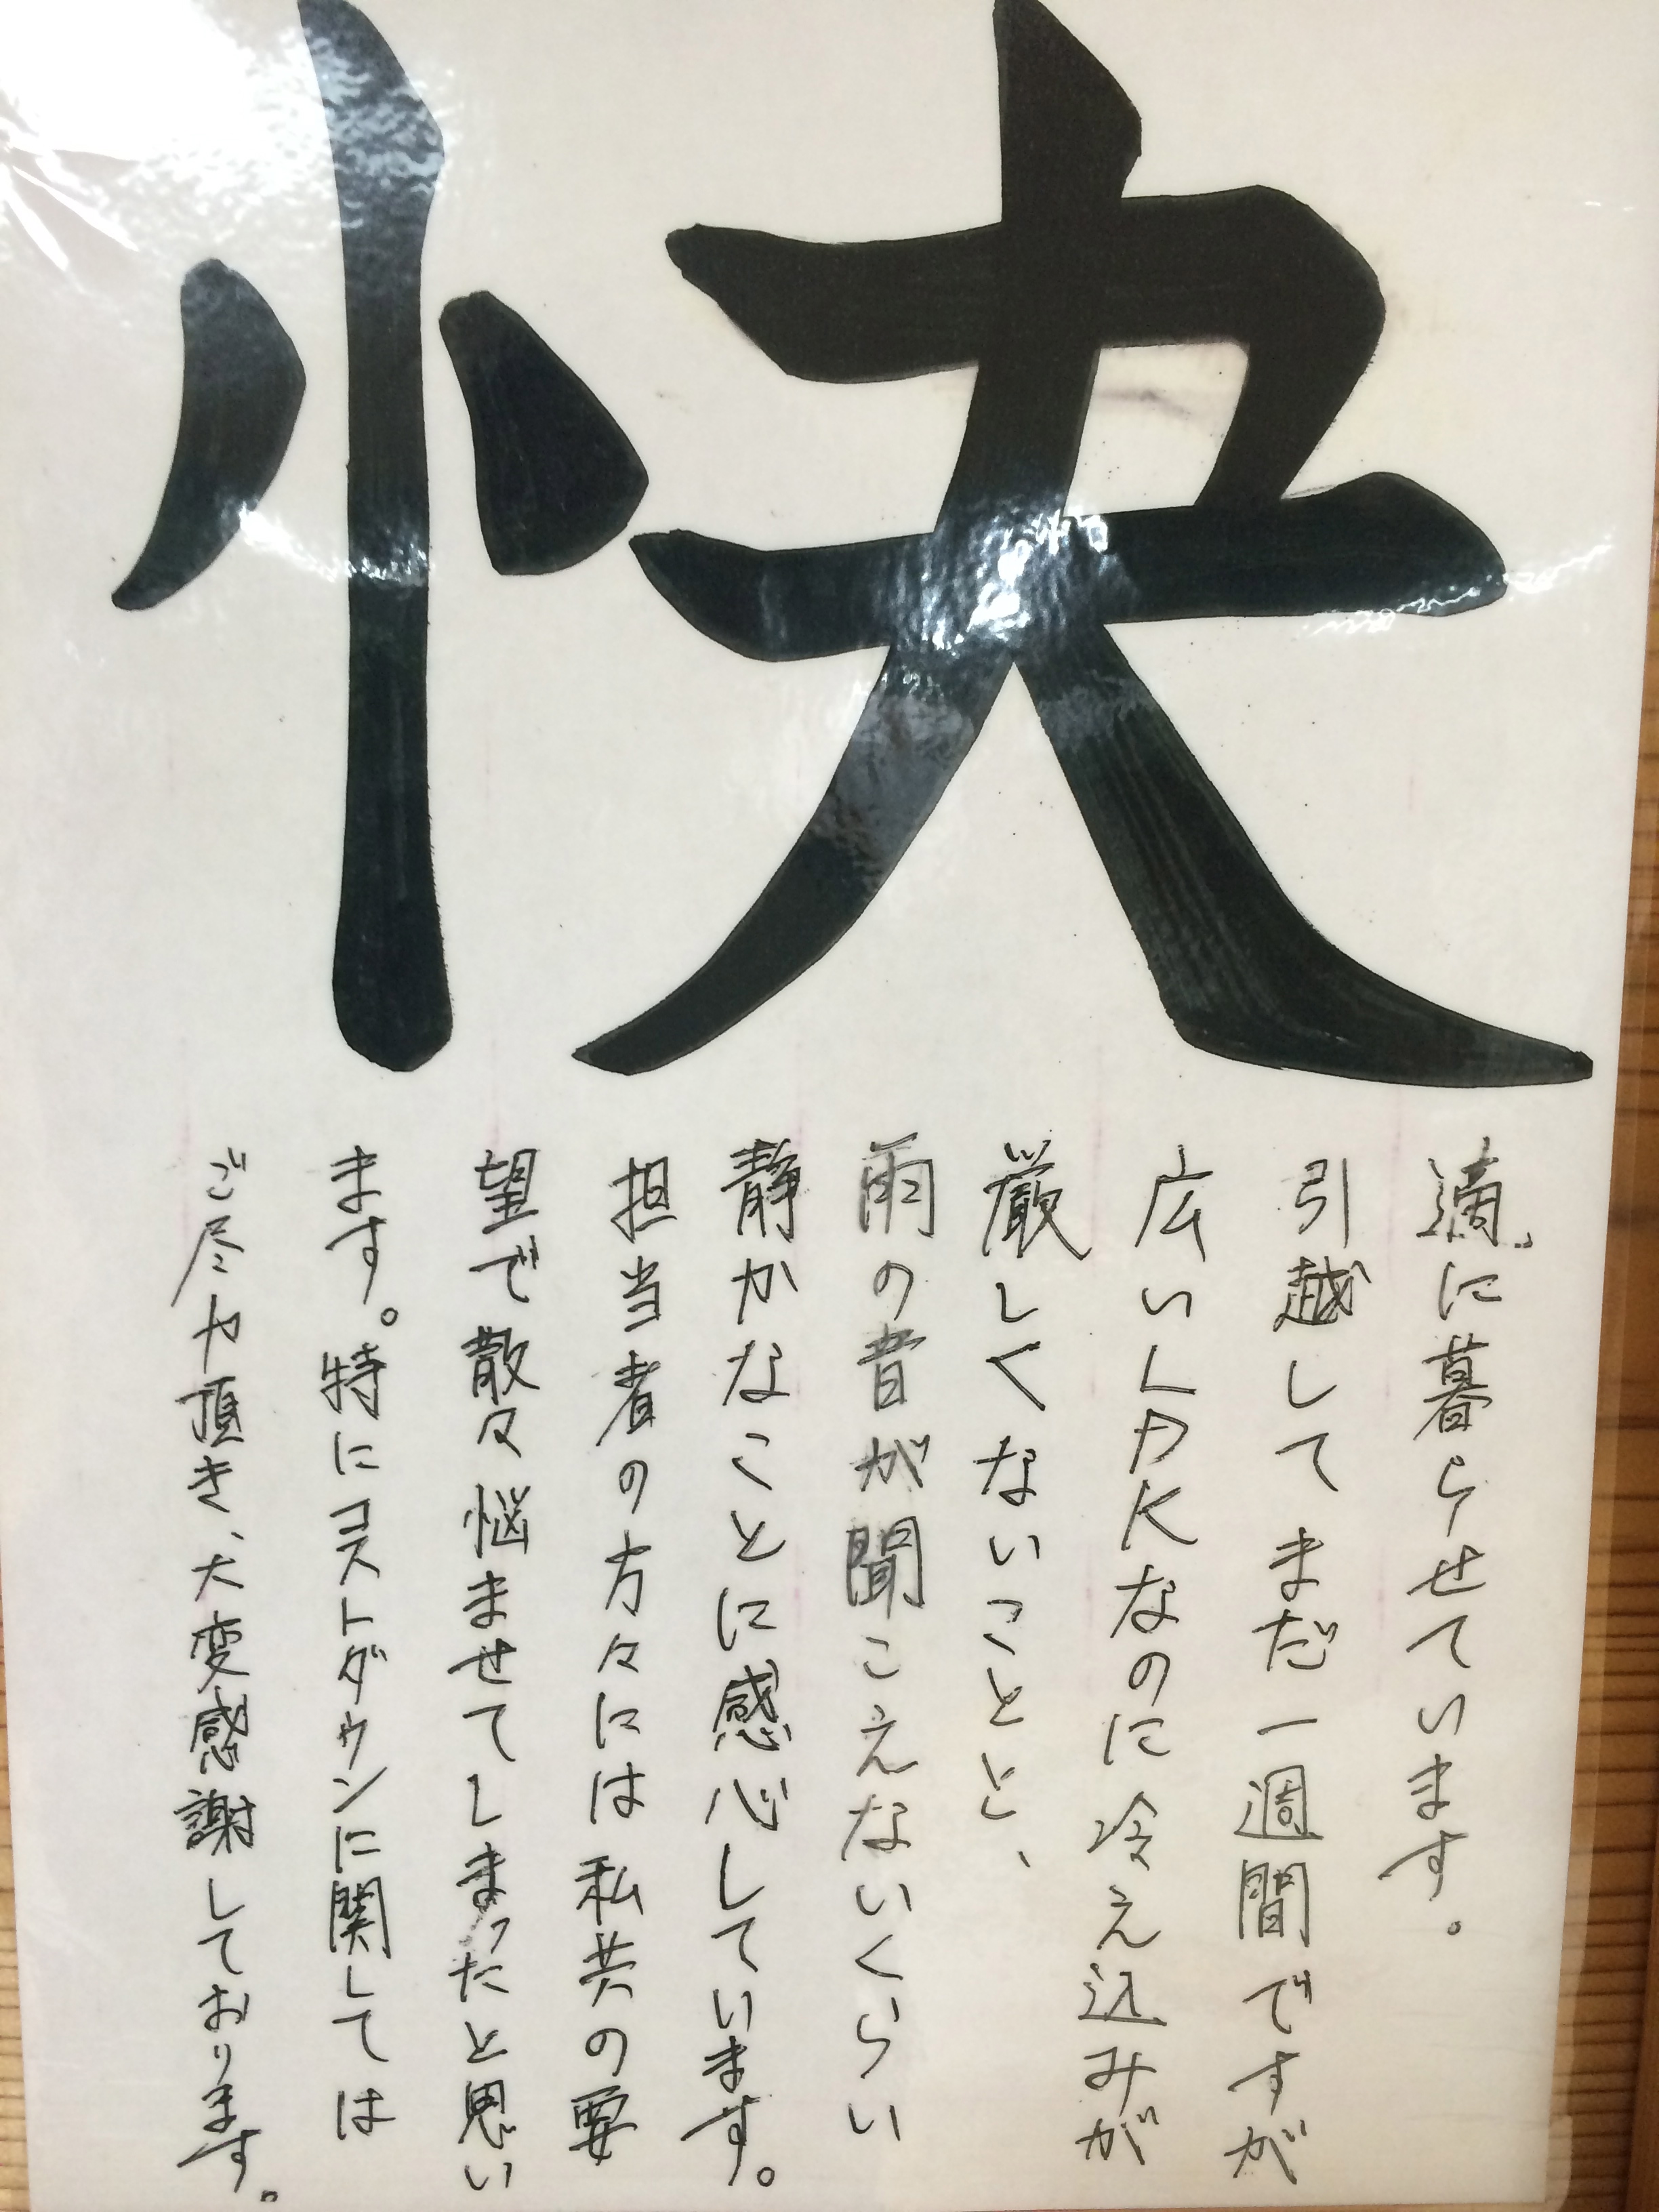 快
適に暮らせています。
引越してまだ一週間ですが
広いLDKなのに冷え込みが
厳しくないことと、
雨の音が聞こえないくらい
静かなことに感心しています。
担当者の方々には私共の要
望で散々悩ませてしまったと思い
ます。特にコストダウンに関しては
ご尽力頂き、大変感謝しております。